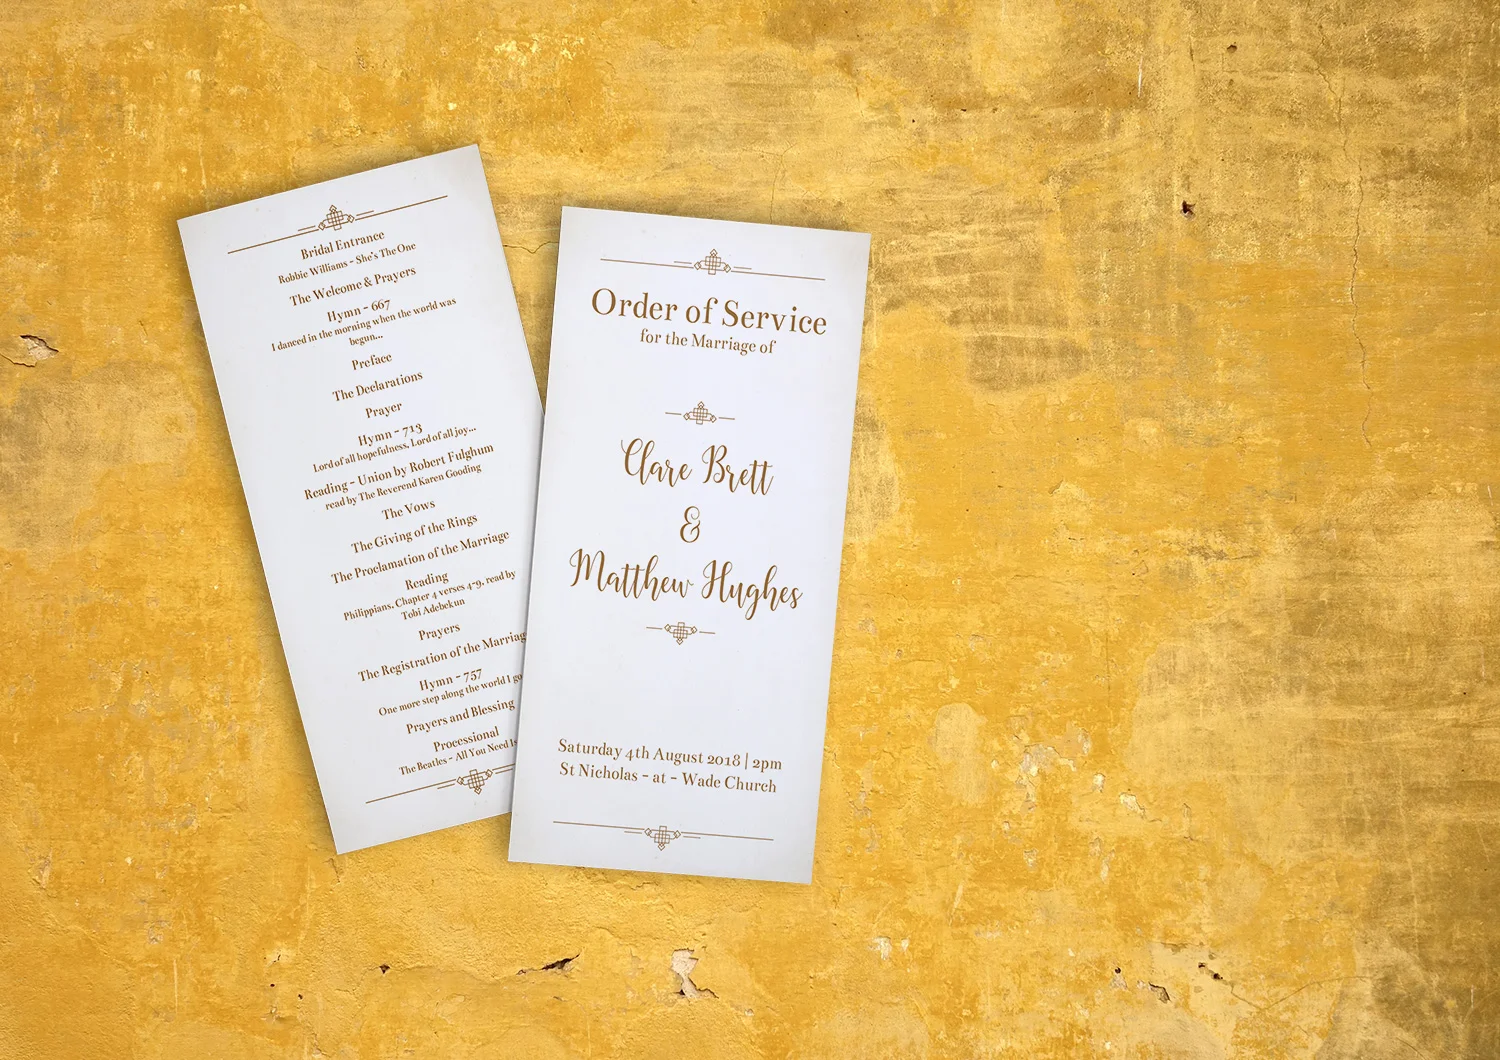 Bridal Entrance
Robbie Williams - She's The One
The Welcome & Prayers
Hymn - 667
I danced in the morning when the world was
begun...
Preface
The Declarations
Prayer
Hymn - 713
Lord of all hopefulness, Lord of all joy...
Reading - Union by Robert Fulghum
read by The Reverend Karen Gooding
The Vows
The Giving of the Rings
The Proclamation of the Marriage
Reading
Philippians, Chapter 4 verses 4-9, read by
Tobi Adebekun
Prayers
The Registration of the Marriag
Hymn - 757
One more step along the world I go
Prayers and Blessing
Processional
The Beatles - All You Need Is
Order of Service
for the Marriage of
Clare Brett
&
Matthew Hughes
Saturday 4th August 2018 | 2pm
St Nicholas - at - Wade Church